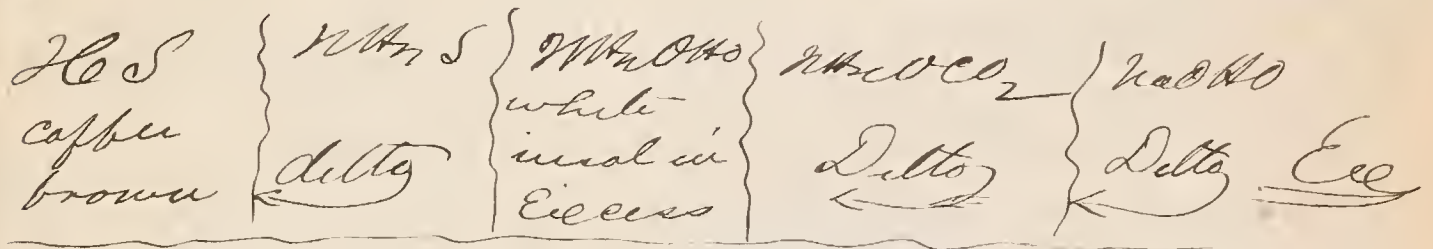 HS
coffee
brown
NH4 S
ditto
NH4 OHO
white
insol in
Excess
NH4 OCO2
Ditto
NaOHO
Ditto Exc